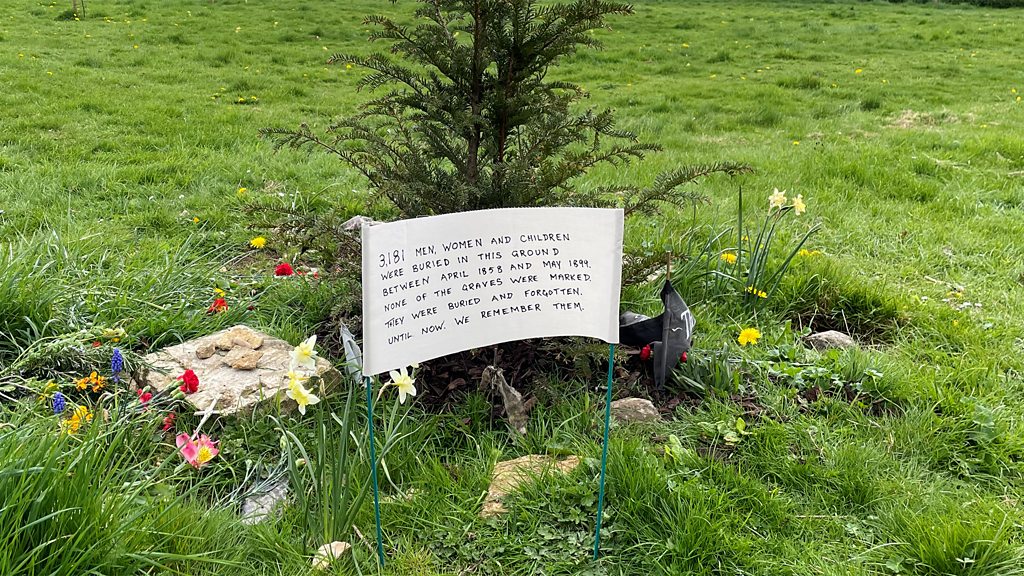 3,181 MEN, WOMEN AND CHILDREN
WERE BURIED IN THIS GROUND
BETWEEN APRIL 1858 AND MAY 1899.
NONE OF THE GRAVES WERE MARKED.
THEY WERE BURIED AND FORGOTTEN.
UNTIL NOW. WE REMEMBER THEM.